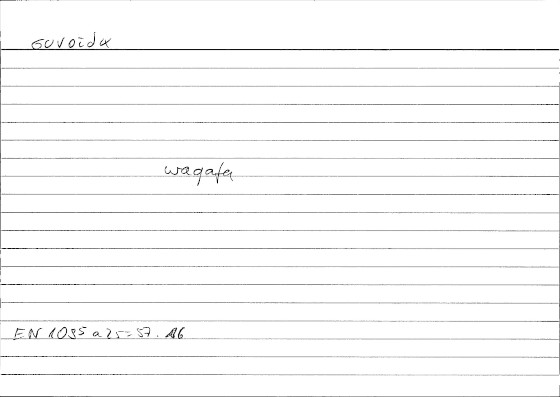 σύνοιδα
waqafa
EN 1095 a 25 = 57. 16